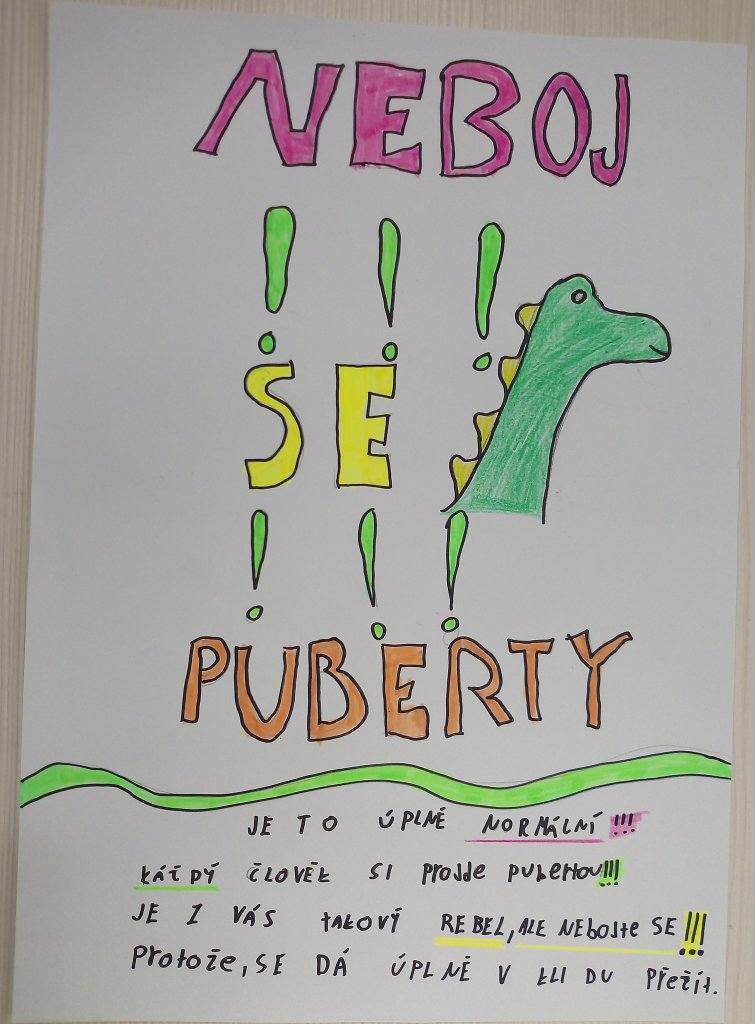 NEBOJ
!!!
SE
!!!
PUBERTY
JE TO ÚPLNĚ NORMÁLNÍ !!!
KÁŽDÝ ČLOVĚK SI PROJDE PUBERTOU!!!
JE Z VÁS TAKOVÝ REBEL, ALE NEBOJTE SE !!!
PROTOŽE, SE DÁ ÚPLNĚ V KLIDU PŘEŽÍT.